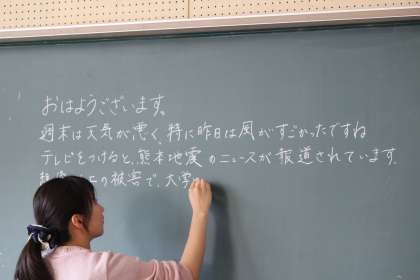 おはようございます。
週末は天気が悪く、特に昨日は風がすごかったですね
テレビをつけると、熊本地震のニュースが報道されています。
の被害で、大学